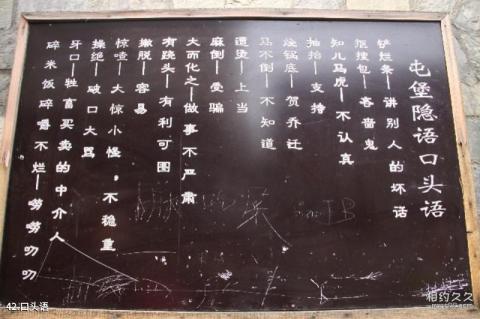 屯堡隐语口头语
铲烂条—讲别人的坏话
抠搜包—吝啬鬼
知儿马虎—不认真
抽抬—支持
烧锅底—贺乔迁
马不倒—不知道
遭烫—上当
麻倒—受骗
大而化之—做事不严肃
有跷头—有利可图
撇脱—容易
惊喳—大惊小怪，不稳重
操绝—破口大骂
牙口—牲畜买卖的中介人
碎米饭碎嚼不烂—唠唠叨叨
42.口头语
相约久久